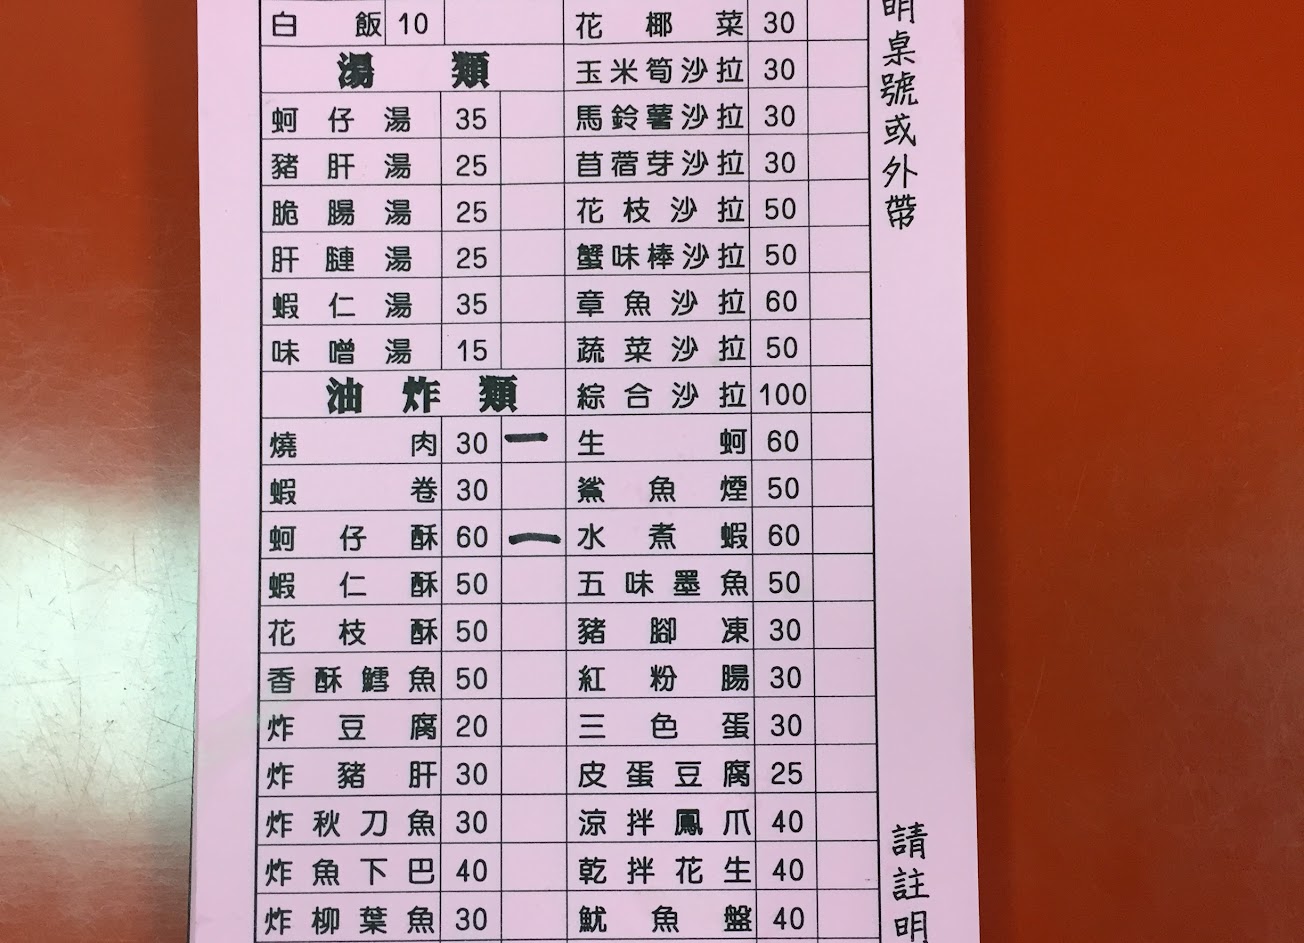 白飯 10
湯類
蚵仔湯 35
豬肝湯 25
脆腸湯 25
肝腱湯 25
蝦仁湯 35
味噌湯 15
油炸類
燒肉 30 一
蝦卷 30
蚵仔酥 60 一
蝦仁酥 50
花枝酥 50
香酥鱈魚 50
炸豆腐 20
炸豬肝 30
炸秋刀魚 30
炸魚下巴 40
炸柳葉魚 30
花椰菜 30
玉米筍沙拉 30
馬鈴薯沙拉 30
苜蓿芽沙拉 30
花枝沙拉 50
蟹味棒沙拉 50
章魚沙拉 60
蔬菜沙拉 50
綜合沙拉 100
生蚵 60
鯊魚煙 50
水煮蝦 60
五味墨魚 50
豬腳凍 30
紅粉腸 30
三色蛋 30
皮蛋豆腐 25
涼拌鳳爪 40
乾拌花生 40
魷魚盤 40
明桌號或外帶
請註明